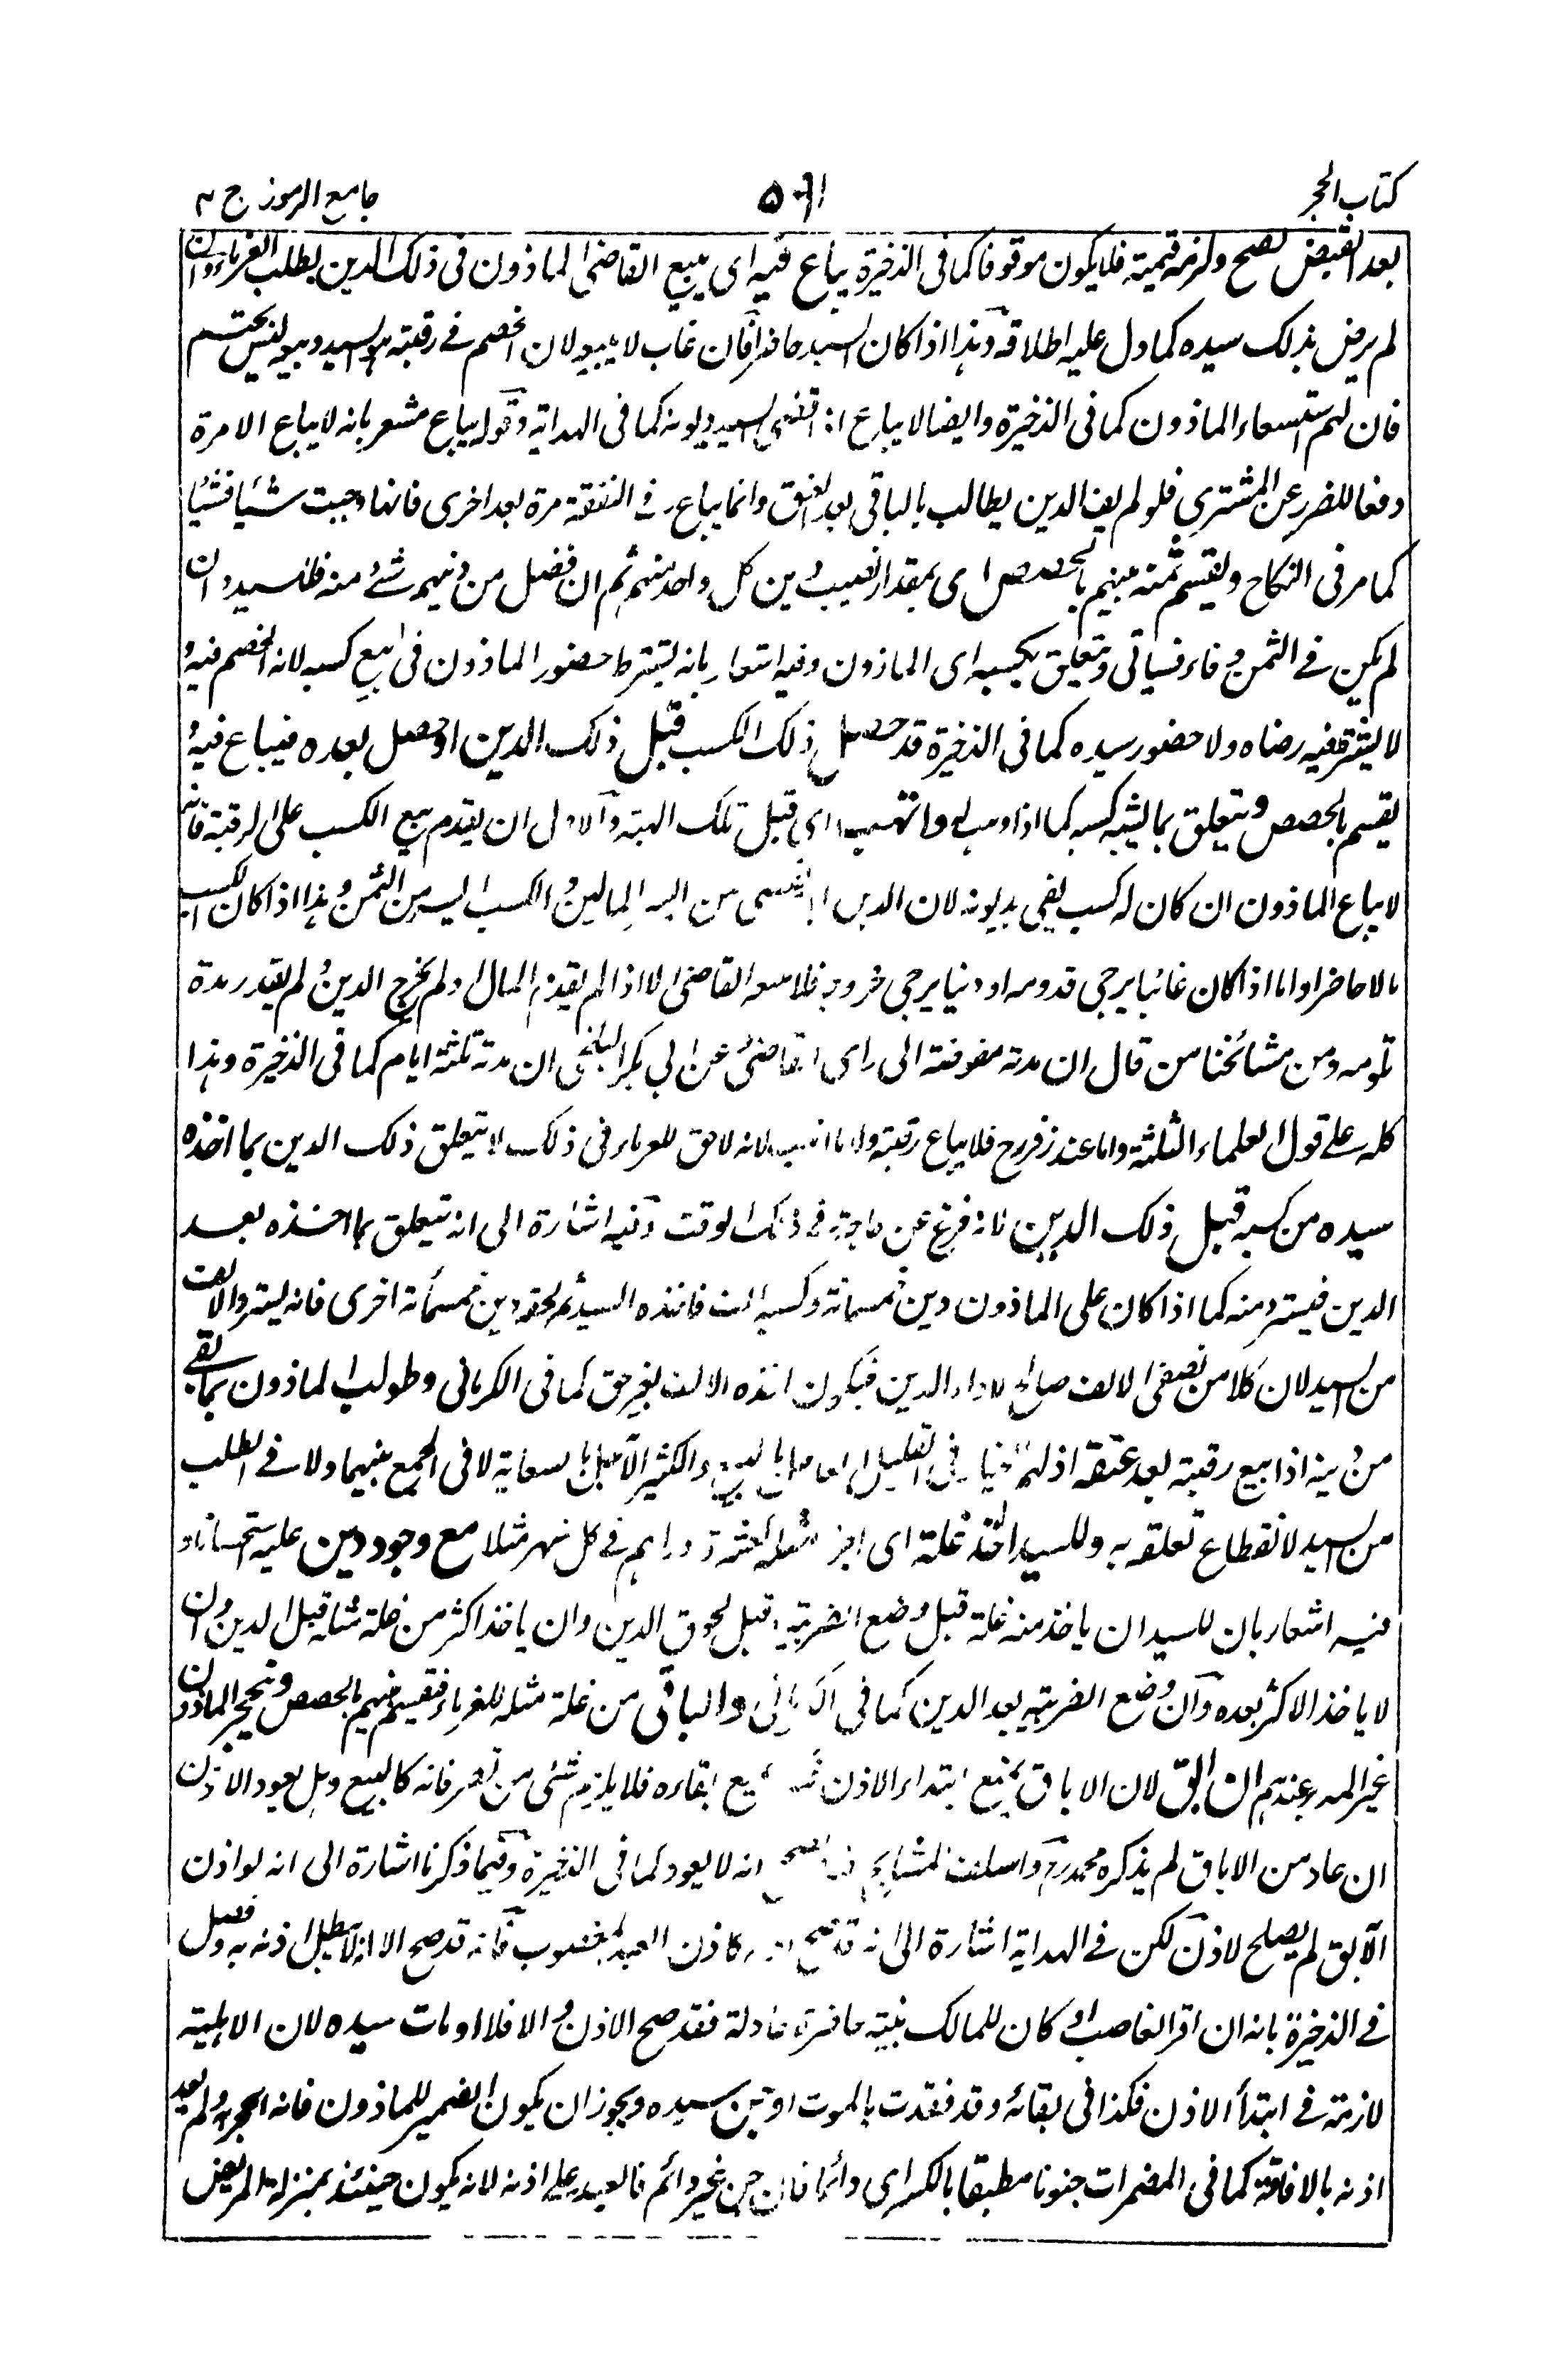 كتاب الحجر
جامع الرموز ج ٣
بعد القبض يصح ولزمه قيمته فلا يكون موقوفا كما فى الذخيرة يباع فيه اى يبيع القاضى الماذون فى ذلك الدين بطلب الغرماء وان
لم يرض بذلك سيده كما دل عليه اطلاقه وهذا اذا كان السيد حاضرا فان غاب لا يبيعه لان الخصم فى رقبته هو السيد وبيعه ليس بحتم
فان لهم استسعاء الماذون كما فى الذخيرة وايضا لا يباع اذا قضى السيد ديونه كما فى الهداية وقوله يباع مشعر بانه لا يباع الا مرة
دفعا للضرر عن المشترى فلو لم يف الدين يطالب بالباقى بعد العتق وانما يباع فى النفقة مرة بعد اخرى فانها وجبت شيأ فشيأ
كما مر فى النكاح ويقسم ثمنه بينهم بالحصص اى بمقدار نصيب دين كل واحد منهم ثم ان فضل من دينهم شئ منه فللسيد وان
لم يكن فى الثمن وفاء فسياتى ويتعلق بكسبه اى الماذون وفيه اشعار بانه يشترط حضور الماذون فى بيع كسبه لانه الخصم فيه و
لا يشترط فيه رضاه ولا حضور سيده كما فى الذخيرة قد حصل ذلك الكسب قبل ذلك الدين او حصل بعده فيباع فيه و
يقسم بالحصص ويتعلق بما يشبه كسبه كما اذا وهب له واتهب اى قبل تلك الهبة والاولى ان يقدم بيع الكسب على الرقبة فانه
لا يباع الماذون ان كان له كسب يفى بديونه لان الدين انما يقضى من ايسر المالين والكسب ايسر من الثمن وهذا اذا كان الكسب
مالا حاضرا واما اذا كان غائبا يرجى قدومه او دينا يرجى خروجه فلا يبيعه القاضى الا اذا لم يقدم المال ولم يخرج الدين ولم يقدر مدة
تلومه ومن مشائخنا من قال ان مدته مفوضة الى راى القاضى وعن ابى بكر البلخى ان مدته ثلثة ايام كما فى الذخيرة وهذا
كله على قول العلماء الثلثة واما عند زفر رح فلا يباع رقبته ولا ما اتهب لانه لا حق للغرماء فى ذلك لا يتعلق ذلك الدين بما اخذه
سيده من كسبه قبل ذلك الدين لانه فرغ عن حاجته فى ذلك الوقت وفيه اشارة الى انه يتعلق بما اخذه بعد
الدين فيسترد منه كما اذا كان على الماذون دين خمسمائة وكسبه الف فاخذه السيد ثم لحقه دين خمسمائة اخرى فانه يسترد الالف
من السيد لان كلا من نصفى الالف صالح لاداء الدين فيكون اخذه الالف بغير حق كما فى الكرمانى وطولب الماذون بما بقى
من دينه اذا بيع رقبته بعد عتقه اذ لهم خيار فى القليل العاجل بالبيع والكثير الآجل بالسعاية لا فى الجمع بينهما ولا فى الطلب
من السيد لانقطاع تعلقه به وللسيد اخذ غلة اى اجر مثله كعشرة دراهم فى كل شهر مثلا مع وجود دين عليه استحسانا و
فيه اشعار بان للسيد ان ياخذ منه غلة قبل وضع الضريبة وقبل لحوق الدين وان ياخذ اكثر من غلة مثله قبل الدين وان
لا ياخذ الاكثر بعده وان وضع الضريبة بعد الدين كما فى الكرمانى والباقى من غلة مثله للغرماء فتقسم بينهم بالحصص وينحجر الماذون
غير المدبر عندهم ان ابق لان الاباق يمنع ابتداء الاذن فيمنع بقاءه فلا يلزم شئ من تصرفاته كالبيع وهل يعود الاذن
ان عاد من الاباق لم يذكره محمد رح واختلف المشايخ والصحيح انه لا يعود كما فى الذخيرة وفيما ذكرنا اشارة الى انه لو اذن
الآبق لم يصلح لاذن لكن فى الهداية اشارة الى انه قد صح كاذن العبد المغصوب فانه قد صح الا انه لا يبطل اذنه به وفصل
فى الذخيرة بانه ان اقر الغاصب او كان للمالك بينة حاضرة عادلة فقد صح الاذن والا فلا او مات سيده لان الاهلية
لازمة فى ابتدأ الاذن فكذا فى بقائه وقد فقدت بالموت او جن سيده ويجوز ان يكون الضمير للماذون فانه انحجر به ولم يعد
اذنه بالافاقة كما فى المضمرات جنونا مطبقا بالكسر اى دائما فان جن غير دائم فالعبد على اذنه لانه يكون حينئذ بمنزلة المريض